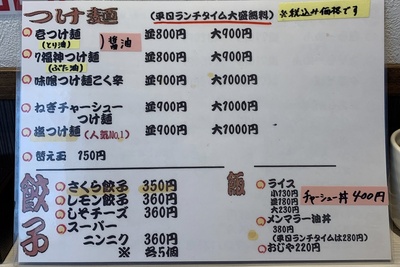 つけ麺
(平日ランチタイム大盛無料)
※税込み価格です
壱つけ麺 並800円 大900円
(とり油)
醤油
7福神つけ麺 並800円 大900円
(ぶた油)
味噌つけ麺こく辛 並900円 大1000円
ねぎチャーシュー
つけ麺 並900円 大1000円
塩つけ麺 (人気No.1) 並900円 大1000円
替え玉 150円
餃子
さくら餃子 350円
レモン餃子 360円
しそチーズ 360円
スーパー
ニンニク 360円
※ 各5個
飯
ライス
小130円
並180円
大230円
チャーシュー丼 400円
メンマラー油丼
380円
(平日ランチタイムは280円)
おじや220円